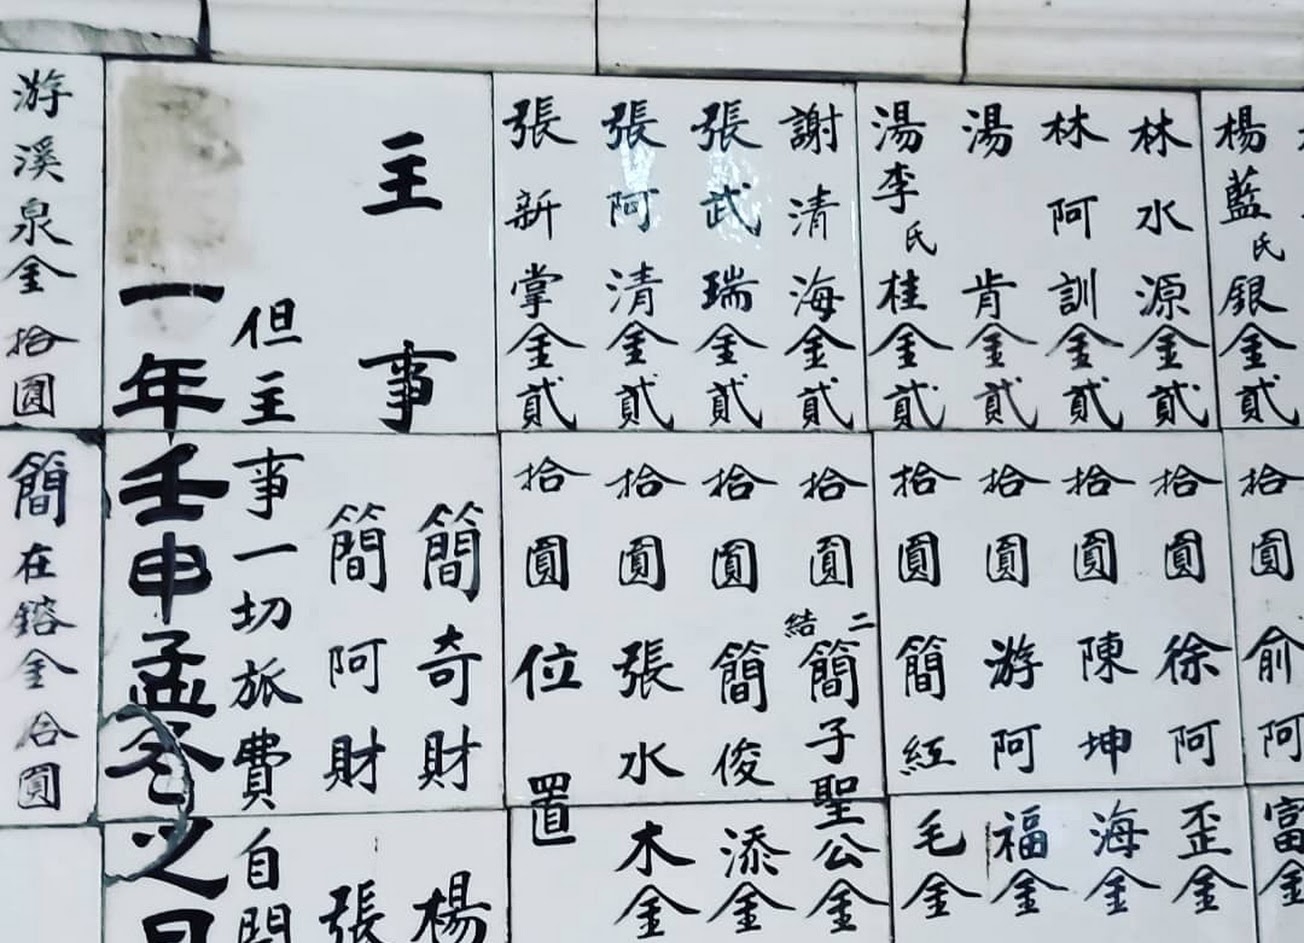 楊藍氏銀金貳拾圓 俞阿富金
林水源金貳拾圓 徐阿歪金
林阿訓金貳拾圓 陳坤海金
湯肯金貳拾圓 游阿福金
湯李氏桂金貳拾圓 簡紅毛金
謝清海金貳拾圓 二結簡子聖公金
張武瑞金貳拾圓 簡俊添金
張阿清金貳拾圓 張水木金
張新掌金貳拾圓 位置
主事 簡奇財 楊
簡阿財 張
但主事一切旅費自開
一年壬申孟冬之
游溪泉金拾圓 簡在鎔金拾圓